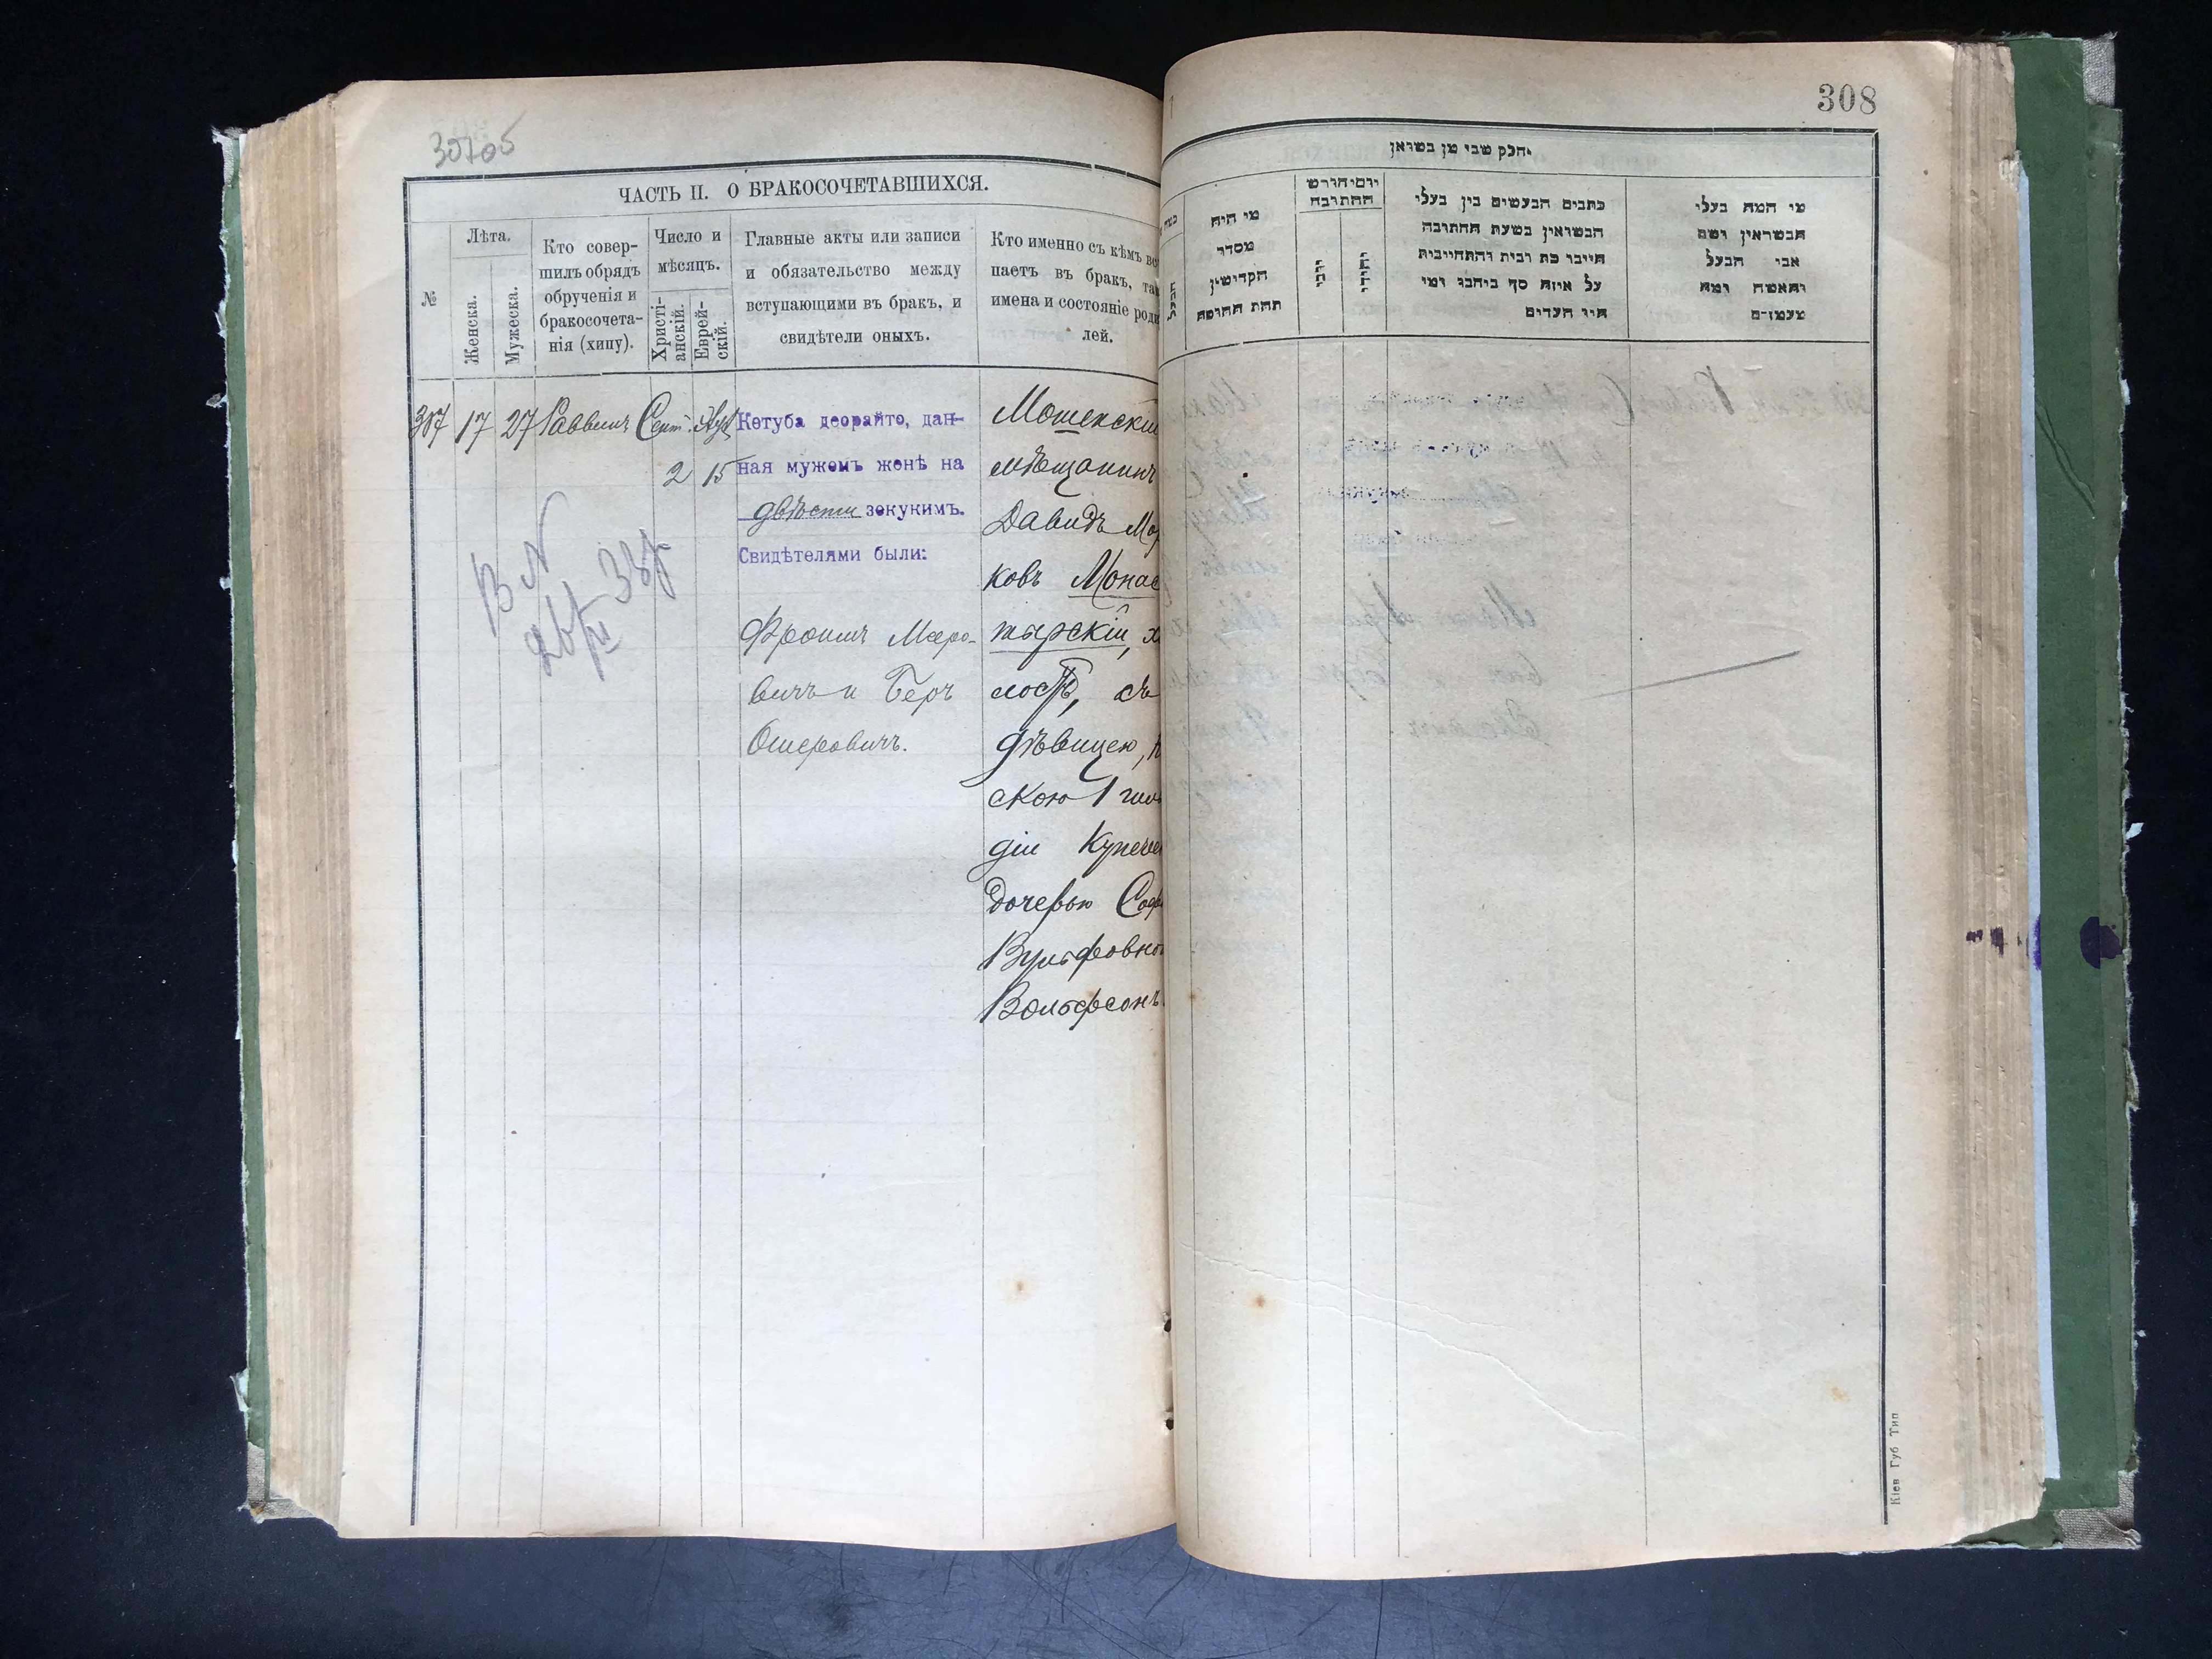 30705
ЧАСТЬ II. О БРАКОСОЧЕТАВШИХСЯ.
№
Лѣта.
Женска.
Мужеска.
Кто совер-
шилъ обрядъ
обрученія и
бракосочета-
нія (хипу).
Число и
мѣсяцъ.
Христі-
анскій.
Еврей-
скій.
Главные акты или записи
и обязательство между
вступающими въ бракъ, и
свидѣтели оныхъ.
Кто именно съ кѣмъ вс
паетъ въ бракъ, так
имена и состояніе роди
лей.
307 17 27 Раввинъ Сент.
2 15
Кетуба деорайто, дан-
ная мужемъ женѣ на
двѣсти зекукимъ.
Свидѣтелями были:
Фроимъ Меро-
вичъ и Беръ
Ошеровичъ.
мѣщанинъ
Давидъ Мор
ковъ Монас
тырскій, х
лостъ, съ
дѣвицею,
скою 1 гиль
діи Купече
дочерью Соф
Вульфовно
Вольфсонъ
308
וחלק שני מן נשואן
מי היה
מסדר
הקדישין
תחת החופה
יום וחודש
החתונה
כתבים הנעשים בין בעלי
הנשואין בשעת החתונה
חייבי כת רבית והתחייבות
על איזה סך ניתנו ומי
היו העדים
מי המה בעלי
הנשואין ושם
אבי הבעל
והאשה ומה
מעמדם
Кіев Губ Тип